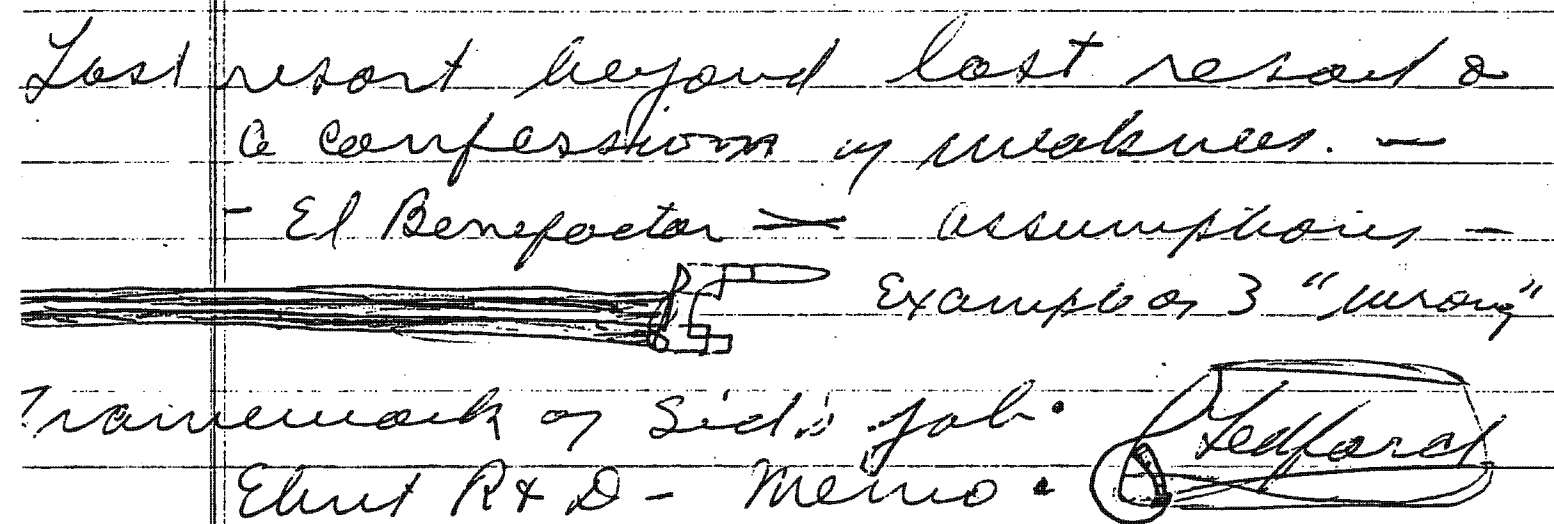 Last resort beyond last resort &
a confession of weakness. —
- El Benefactor — assumptions -
Example of 3 "wrong"
Framework of Sid's job.
Elint R & D - Memo.
Ledford